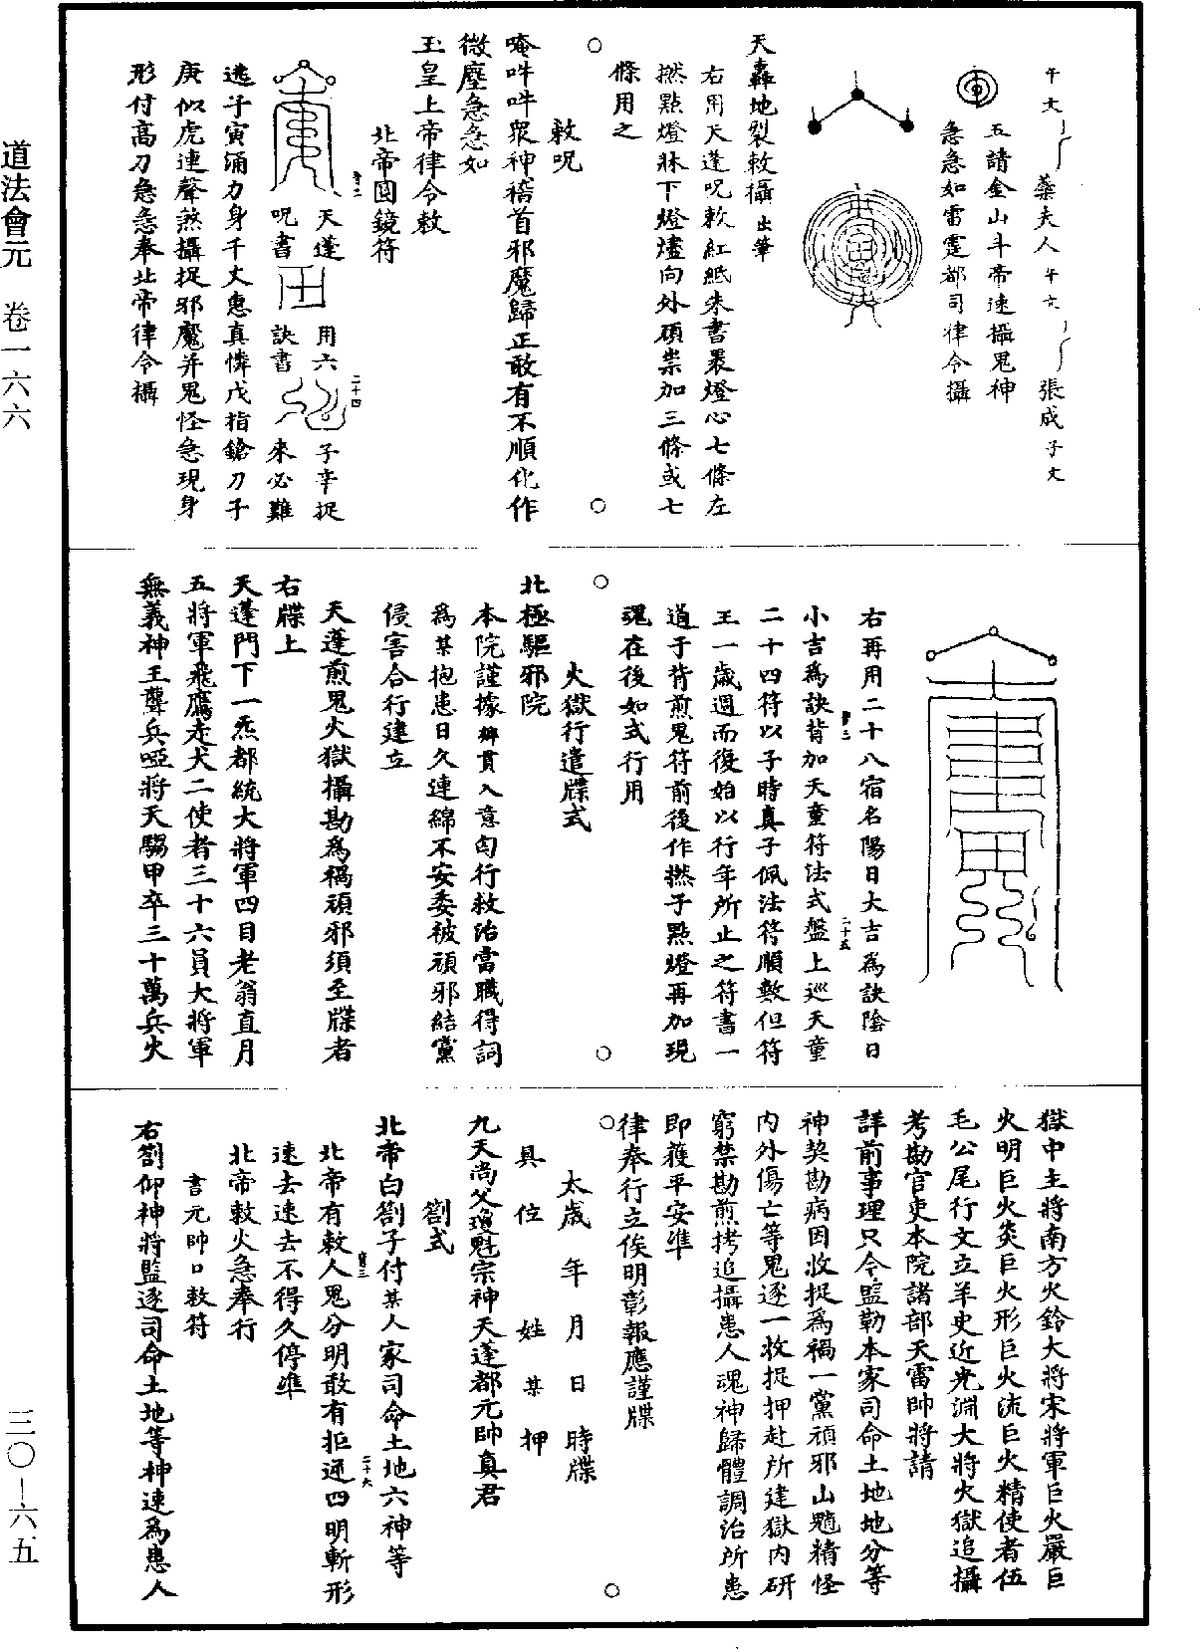 午文
藥夫人午文
張成子文
五請金山斗帝速攝鬼神
急急如雷霆都司律令攝
天轟地裂敕攝出筆
右用天蓬呪敕紅紙朱書褁燈心七條左
撚點燈牀下燈燼向外頑祟加三條或七
條用之
敕呪
唵吽吽眾神稽首邪魔歸正敢有不順化作
微塵急急如
玉皇上帝律令敕
北帝圓鏡符
天蓬
呪書
用六
訣書
二十四
子辛捉
來必難
逃子寅涌力身千丈惠真憐戊指鎗刀子
庚似虎連聲煞攝捉邪魔并鬼怪急現身
形付高刀急急奉北帝律令攝
右再用二十八宿名陽日大吉為訣陰日
小吉為訣背加天童符法式盤上巡天童
二十五
二十四符以子時真子佩法符順數但符
王一歲週而復始以行年所止之符書一
道于背煎鬼符前後作撚子點燈再加現
魂在後如式行用
火獄行遣牒式
北極驅邪院
本院謹據鄉貫入意旬行救治當職得詞
為某抱患日久連綿不安委被頑邪結黨
侵害合行建立
天蓬煎鬼火獄攝勘為禍頑邪須至牒者
右牒上
天蓬門下一炁都統大將軍四目老翁直月
五將軍飛鷹走犬二使者三十六員大將軍
無義神王聾兵啞將天騶甲卒三十萬兵火
獄中主將南方火鈴大將宋將軍巨火嚴巨
火明巨火炎巨火形巨火流巨火精使者伍
毛公尾行文立羊史近光淵大將火獄追攝
考勘官吏本院諸部天雷帥將請
詳前事理只令監勒本家司命土地地分等
神契勘病因收捉為禍一黨頑邪山魈精怪
內外傷亡等鬼逐一收捉押赴所建獄內研
窮禁勘煎拷追攝患人魂神歸體調治所患
即獲平安準
律奉行立俟明彰報應謹牒
太歲 年 月 日 時牒
具 位 姓 某 押
九天尚父瓊魁宗神天蓬都元帥真君
劄式
北帝白劄子付某人家司命土地六神等
二十六
北帝有敕人鬼分明敢有拒逆四明斬形
速去速去不得久停準
北帝敕火急奉行
書元帥口敕符
右劄仰神將監逐司命土地等神速為患人
道法會元 卷一六六
三〇—六五